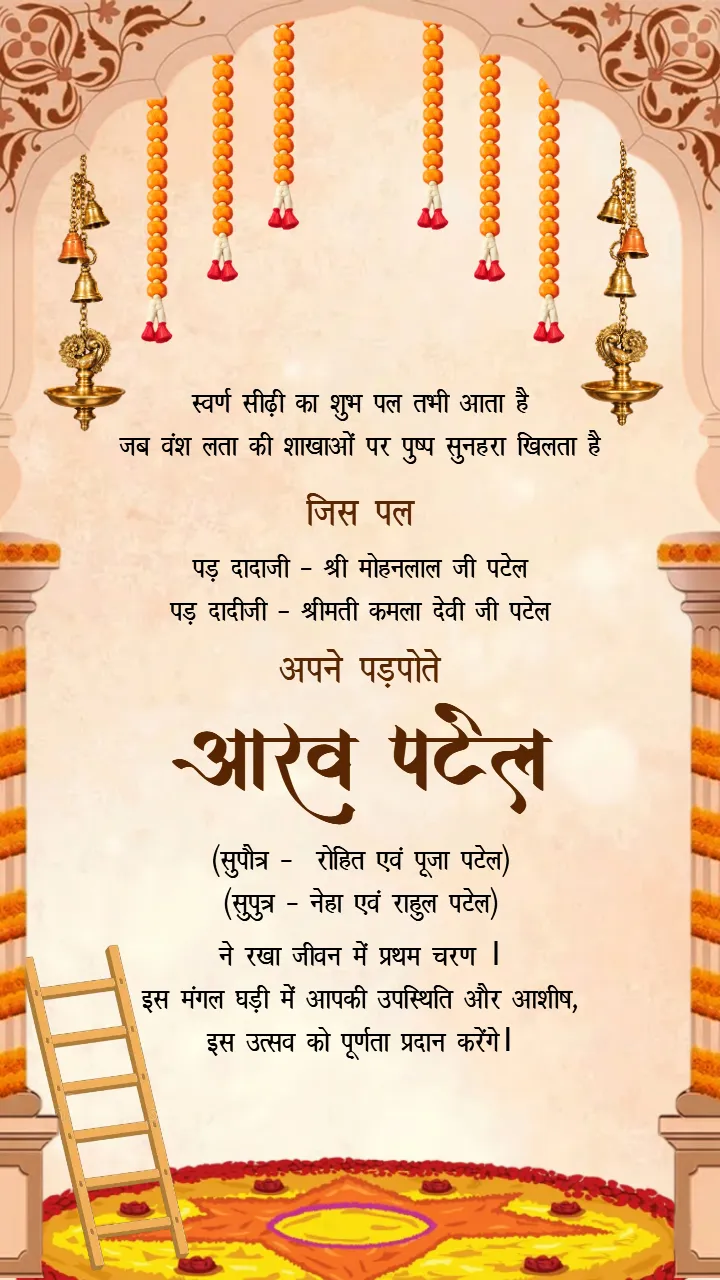 स्वर्ण सीढ़ी का शुभ पल तभी आता है
जब वंश लता की शाखाओं पर पुष्प सुनहरा खिलता है
जिस पल
पड़ दादाजी - श्री मोहनलाल जी पटेल
पड़ दादीजी - श्रीमती कमला देवी जी पटेल
अपने पड़पोते
आरव पटेल
(सुपौत्र - रोहित एवं पूजा पटेल)
(सुपुत्र - नेहा एवं राहुल पटेल)
ने रखा जीवन में प्रथम चरण ।
इस मंगल घड़ी में आपकी उपस्थिति और आशीष,
इस उत्सव को पूर्णता प्रदान करेंगे।